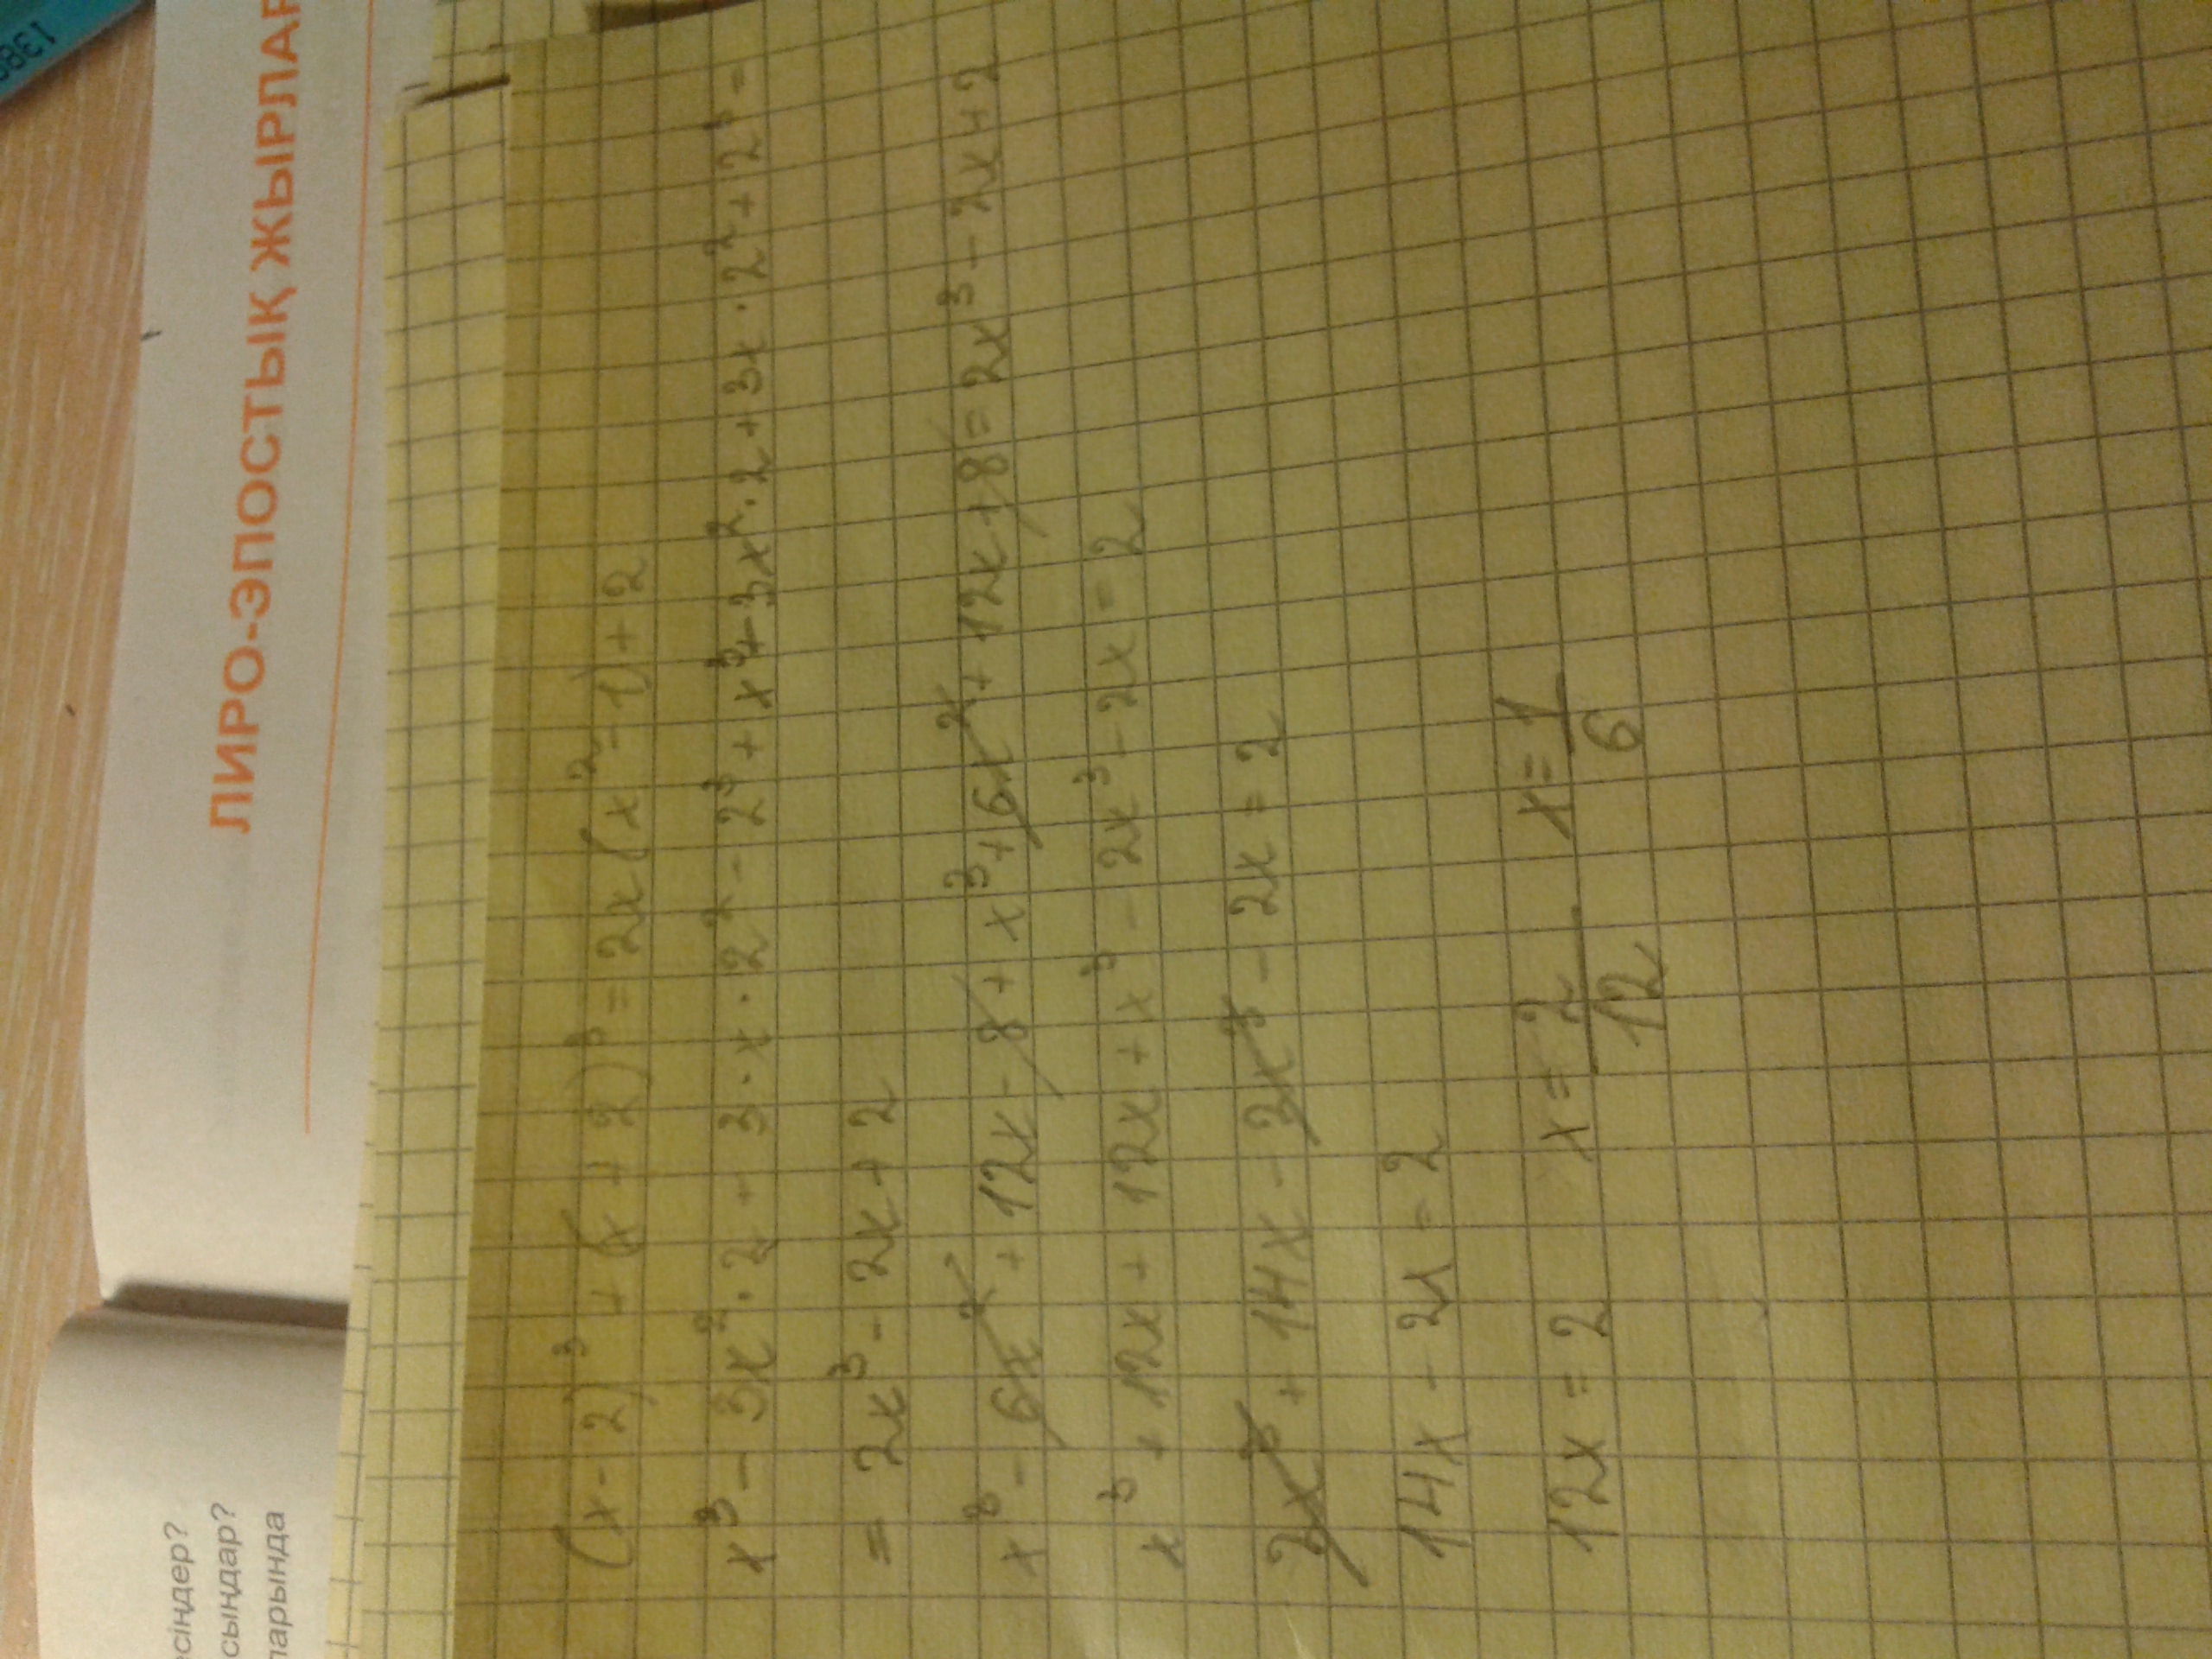 ЛИРО-ЭПОСТЫҚ ЖЫРЛАР
сіңдер?
сыңдар?
ларында
(x-2)³ + (x+2)³ = 2x(x²-1)+2
x³ - 3x²·2 + 3·x·2² - 2³ + x³ + 3x²·2 + 3x·2² + 2³ =
= 2x³ - 2x + 2
x³ - 6x² + 12x - 8 + x³ + 6x² + 12x + 8 = 2x³ - 2x + 2
x³ + 12x + 12x + x³ - 2x³ - 2x = 2
2x³ + 14x - 2x³ - 2x = 2
14x - 2x = 2
12x = 2 x = 2/12 x = 1/6